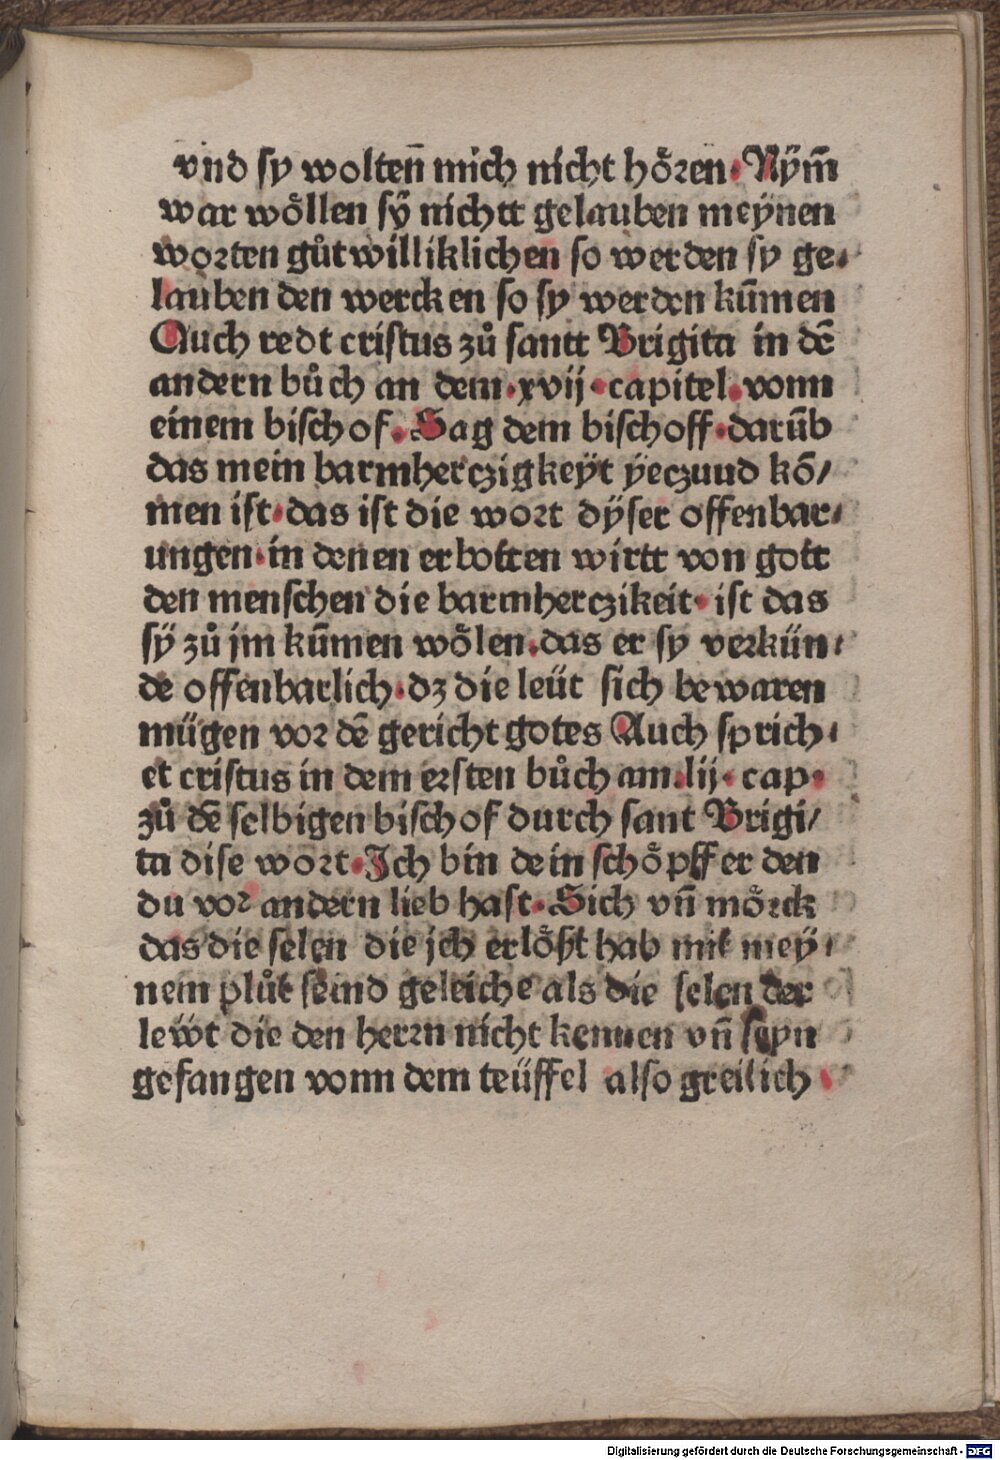 vnd sy wolten̄ mich nicht hören· Nym̄
war wöllen sÿ nichtt gelauben meÿnen
worten gůtwilliklichen so werden sy ge⸗
lauben den wercken so sy werden kūmen
Auch redt cristus zů santt Brigita in dē
andern bůch an dem·xvij·capitel·vonn
einem bischof· Sag dem bischoff·darūb
das mein barmherczigkeÿt ÿeczuud kō/
men ist·das ist die wort dÿser offenbar⸗
ungen·in denen erbotten wirtt von gott
den menschen die barmherczikeit· ist das
sÿ zů jm kūmen wölen·das er sy verkün⸗
de offenbarlich·dz die leüt sich bewaren
mügen vor dē gericht gotes Auch sprich⸗
et cristus in dem ersten bůch am·lij·cap·
zů dē selbigen bischof durch sant Brigi/
ta dise wort·Jch bin dein schöpffer den
du vor andern lieb hast·Sich vn̄ mörck
das die selen die jch erlößt hab mit mey⸗
nem plůt seind geleiche als die selen der
lewt die den herrn nicht kennen vn̄ seyn
gefangen vonn dem teüffel also greilich
Digitalisierung gefördert durch die Deutsche Forschungsgemeinschaft - DFG